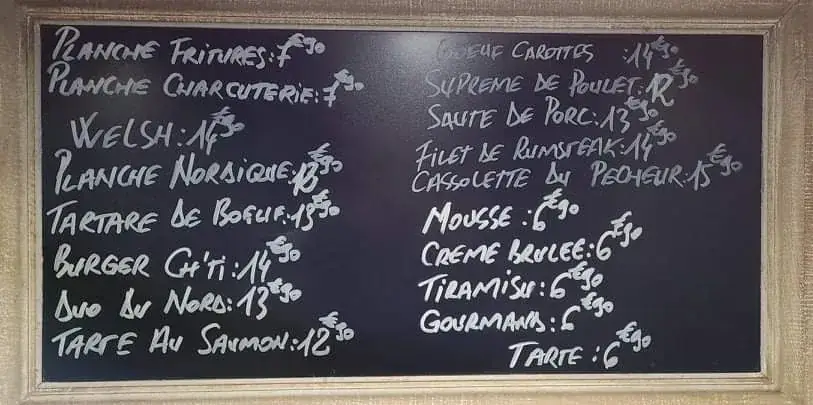 PLANCHE FRITURES: 7€90
PLANCHE CHARCUTERIE: 7€90
WELSH: 14€90
PLANCHE NORDIQUE: 13€90
TARTARE DE BOEUF: 13€90
BURGER CH'TI: 14€90
DUO DU NORD: 13€90
TARTE AU SAUMON: 12€90
BOEUF CAROTTES : 14€90
SUPREME DE POULET: 12€90
SAUTE DE PORC: 13€90
FILET DE RUMSTEAK: 14€90
CASSOLETTE DU PECHEUR: 15€90
MOUSSE : 6€90
CREME BRULEE: 6€90
TIRAMISU: 6€90
GOURMAND: 6€90
TARTE : 6€90